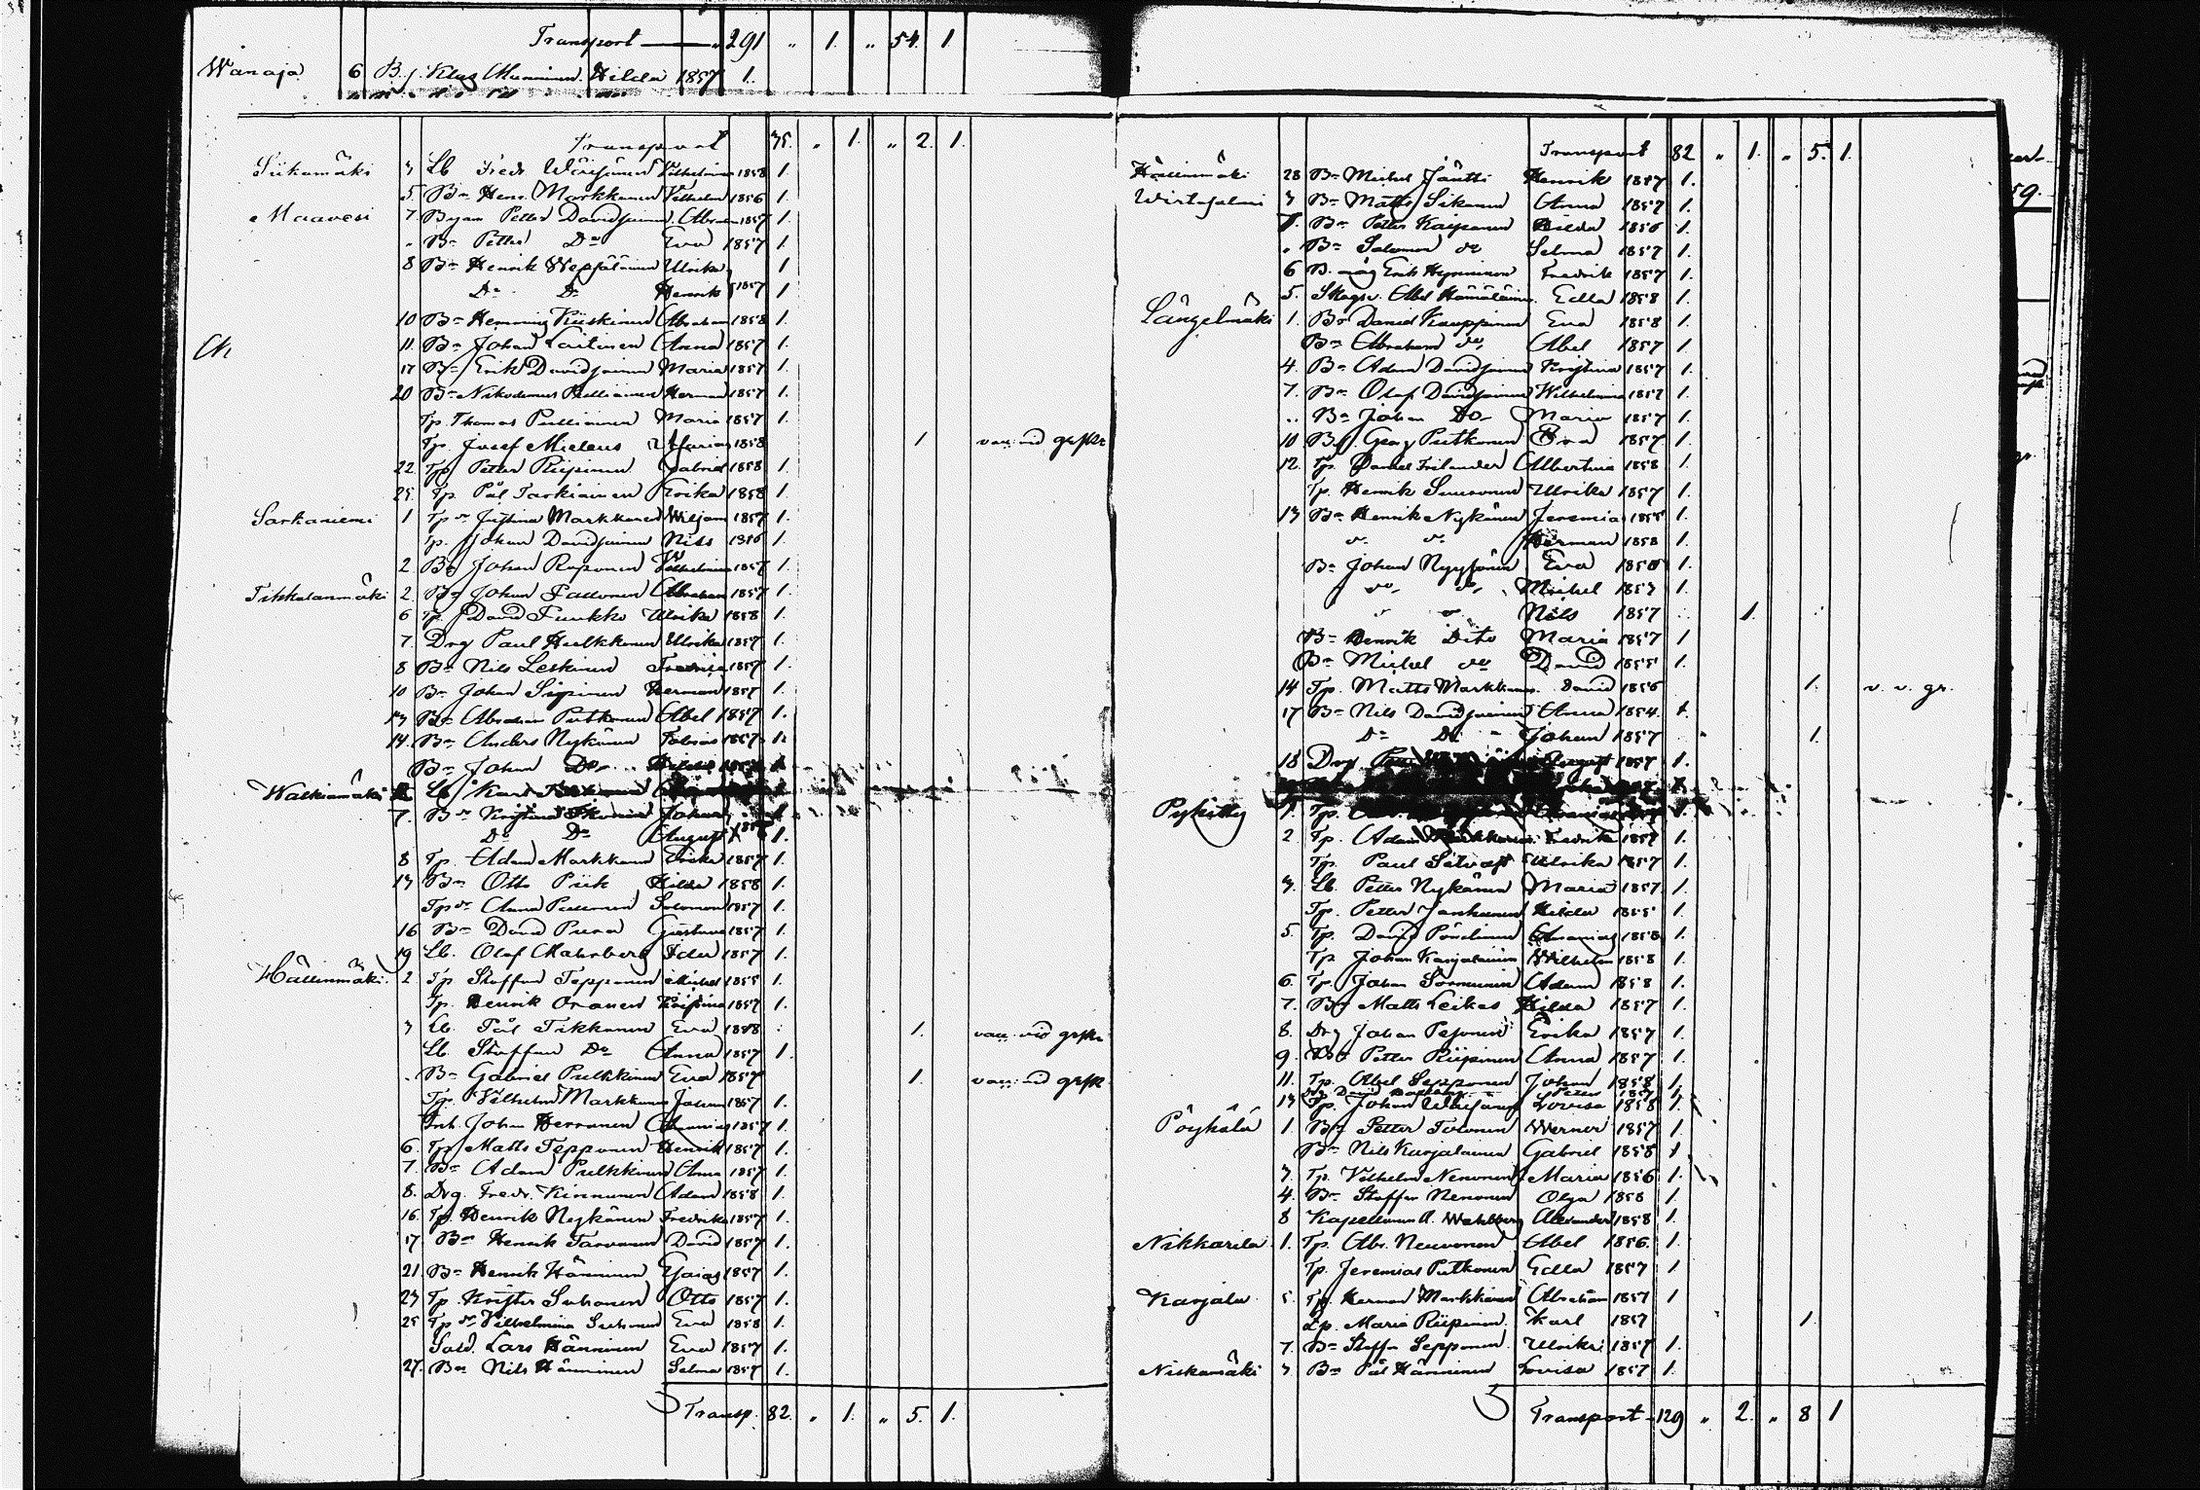 Transport — 291 " 1. " 54. 1
Wanaja 6 B. j. Klas Manninen Hilda 1857 1.
Transport 35. " 1. " 2. 1.
Siikamäki 3 Lb Fredr Wäisänen Vilhelmina 1858 1.
5. Bn Henr. Markkanen Vilhelm 1856 1.
Maavesi 7 Petter Davidsainen Abram 1857 1.
" Bn Petter Do Eva 1857 1.
8 Bn Henrik Wepsäläinen Ulrika 1
Do Do Henrik 1857 1
10 Bn Hemming Kiiskinen Abraham 1858 1.
11. Bn Johan Laitinen Anna 1857 1.
17 Bn Erik Davidsainen Maria 1857 1.
20 Bn Nikodemus Pulliainen Herman 1857 1.
Tp. Thomas Pulliainen Maria 1857 1.
Tp. Josef Mielens Maria 1858 1 vacc. vid grsk
22. Tp Petter Riipinen Gabriel 1858 1.
25. Tp. Pål Tarkiainen Erika 1858 1.
Sarkaniemi 1 Tp Justina Markkanen Wiljam 1857 1.
Tp. Johan Davidsainen Nils 1856 1.
2 Bn Johan Reponen Vilhelmina 1857 1.
Tikkalanmäki 2. Bn Johan Paldonen Abraham 1857 1.
6 Tp. David Turkko Ulrika 1858 1.
7. Drg Paul Hulkkonen Ulrika 1857 1.
8 Bn Nils Leskinen Fredrika 1857 1.
10 Bn Johan Sipinen Herman 1857 1.
13 Bn Abraham Putkonen Abel 1857 1.
14. Bn Anders Nykänen Tobias 1857 1.
Bn Johan Do 1857
Walkiamäki Lb Karl
7. Bn Johan
Do Do August 1.
8 Tp. Adam Markkanen Erika 1857 1.
13 Bn Otto Piik Hilda 1858 1.
Tp Anna Pulkkinen Salomon 1857 1.
16 Bn David Pura Gustava 1857 1.
19 Lb. Olof Malmberg Ida 1857 1.
Hällinmäki. 2 Tp Staffan Tepponen Mickel 1855 1.
Tp. Henrik Oranen Kristina 1857 1.
3 Lb. Pål Tikkanen Eva 1858 1. vacc. vid grsk
Lb. Staffan Do Anna 1857 1.
Bn Gabriel Pulkkinen Eva 1857 1. vacc. vid grsk
Tp. Vilhelm Markkanen Johan 1857 1.
Inh. Johan Herranen Ananias 1857 1.
6. Tp Matts Tepponen Henrik 1857 1.
7. Bn Adam Pulkkinen Anna 1857 1.
8. Drg. Fredr. Kinnunen Adam 1858 1.
16. Tp. Henrik Nykänen Fredrika 1857 1.
17. Bn Henrik Tarvanen David 1857 1.
21. Bn Henrik Hänninen Esaias 1857 1.
23 Tp. Krister Suhonen Otto 1857 1.
25 Tp Vilhelmina Suhonen Eva 1858 1.
Sold. Lars Hänninen Eva 1857 1.
27. Bn Nils Hänninen Selma 1857 1.
Transp. 82. " 1. " 5. 1.
Transport 82 " 1. " 5. 1.
Hällinmäki 28 Bn Michel Jäntti Henrik 1857 1.
Wirtasalmi 3 Bn Matts Sikanen Anna 1857 1.
7. Bn Petter Kaipanen Hilda 1856 1.
" Bn Salomon do Selma 1857 1.
6 B. måg Erik Hynninen Fredrik 1857 1.
5. Skogsv. Abel Hämäläinen Edla 1858 1.
Längelmäki 1. Bn David Kauppinen Eva 1858 1.
Bn Abraham do Abel 1857 1.
4. Bn Adam Davidsainen Kristina 1857 1.
7. Bn Olof Davidsainen Wilhelmina 1857 1.
" Bn Johan Do Maria 1857 1.
10 Bn Georg Putkonen Eva 1857 1.
12. Tp. Daniel Frilander Albertina 1858 1.
Tp. Henrik Suuronen Ulrika 1857 1.
13 Bn Henrik Nykänen Jeremias 1855 1.
do do Herman 1858 1.
Bn Johan Nyyssönen Eva 1858 1.
do do Mickel 1857 1.
do do Nils 1857 1.
Bn Henrik Dito Maria 1857 1
Bn Mickel do David 1855 1.
14 Tp. Matts Markkanen David 1856 1. v. v. gr.
17 Bn Nils Davidsainen Anna 1854. 1.
Do Do Johan 1857 1.
18 Drg. August 1857 1.
Pyhitty 1. Tp. 1.
2 Tp. Adam Fredrika 1857 1.
Tp. Paul Silvast Ulrika 1857 1.
3. Lb. Petter Nykänen Maria 1857. 1.
Tp. Petter Janhunen Hilda 1855 1.
5. Tp. David Pöndinen Ananias 1858 1.
Tp Johan Karjalainen Wilhelm 1858 1.
6. Tp. Johan Sormunen Adam 1858 1.
7. Bn Matts Leikas Hilda 1857 1.
8. Drg Johan Pesonen Erika 1857 1.
9. Petter Riipinen Anna 1857 1.
11. Tp. Abel Sepponen Johan 1858 1.
Drg David Petter 1857 1.
13 Tp. Johan Wäisänen Lovisa 1858 1.
Pöyhölä 1. Bn Petter Toivonen Werner 1857 1.
Bn Nils Karjalainen Gabriel 1858 1
3. Tp. Vilhelm Nenonen Maria 1856 1.
4. Bn Staffan Nenonen Olga 1858 1.
8 Kapellman A. Wahlberg Alexander 1858 1.
Nikkarila 1. Tp. Abr. Neuvonen Abel 1856. 1.
Tp. Jeremias Putkonen Edla 1857 1
Karjala 5. Tp. Herman Markkanen Abraham 1857 1
Lp. Maria Riipinen Karl 1857 1.
7. Bn Staffn Sepponen Ulrika 1857 1.
Niskamäki 3 Bn Pål Hänninen Lovisa 1857 1.
Transport 129 " 2. " 8 1